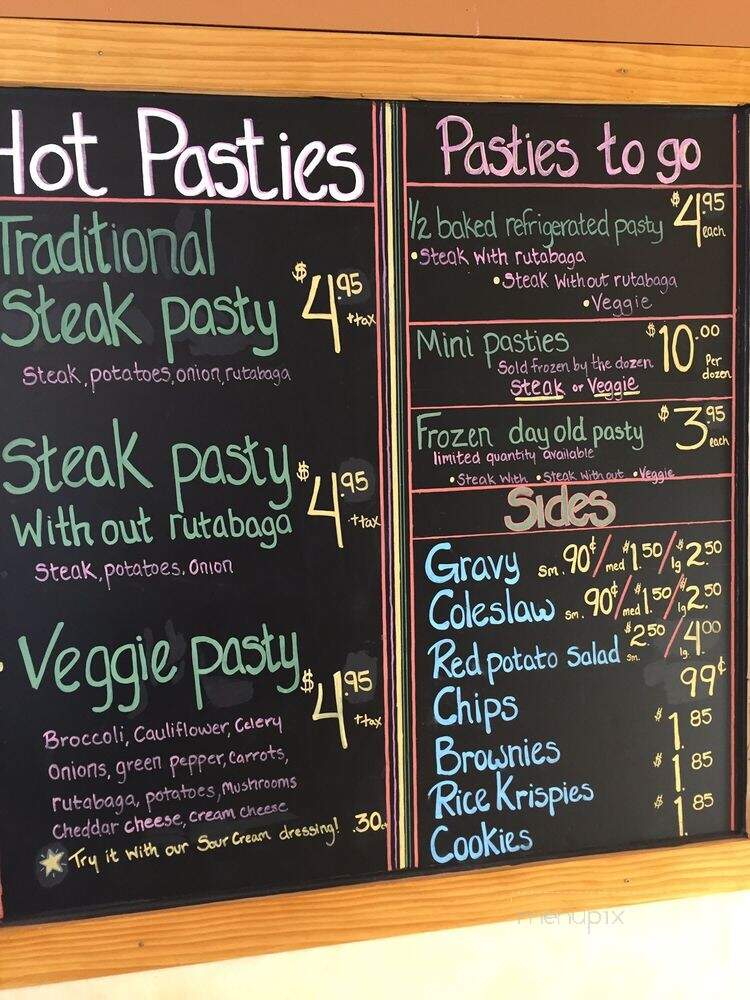 Hot Pasties
Traditional
Steak pasty $4.95 +tax
Steak, potatoes, onion, rutabaga
Steak pasty $4.95 +tax
With out rutabaga
Steak, potatoes. Onion
Veggie pasty $4.95 +tax
Broccoli, Cauliflower, Celery
Onions, green pepper, Carrots,
rutabaga, potatoes, Mushrooms
Cheddar cheese, cream cheese
Try it with our Sour Cream dressing! .30¢
Pasties to go
1/2 baked refrigerated pasty $4.95 each
• Steak With rutabaga
• Steak Without rutabaga
• Veggie
Mini pasties $10.00 Per dozen
Sold frozen by the dozen
Steak or Veggie
Frozen day old pasty $3.95 each
limited quantity available
• Steak With • Steak With out • Veggie
Sides
Gravy sm. 90¢/med $1.50/lg $2.50
Coleslaw sm. 90¢/med $1.50/lg $2.50
Red potato Salad $2.50 sm./lg. 4.00
Chips 99¢
Brownies $1.85
Rice Krispies $1.85
Cookies $1.85
menupix